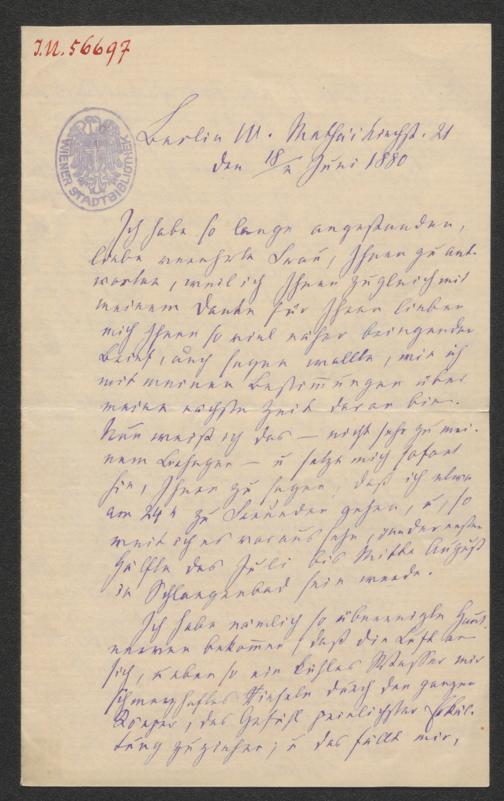 J.N. 56697
WIENER STADTBIBLIOTHEK
Berlin W. Mathäikirchst. 21
den 18/ Juni 1880
Ich habe so lange angestanden,
liebe verehrte Frau, Ihnen zu ant-
worten, weil ich Ihnen zugleich mit
meinem Danke für Ihren lieben
mich Ihnen so viel näher bringenden
Brief, auch sagen wollte, wie ich
mit meinen Bestimmungen über
meine nächste Zeit daran bin.
Nun weiß ich das — nicht sehr zu mei-
nem Behagen — u setze mich sofort
hin, Ihnen zu sagen, daß ich etwa
am 24t zu Freunden gehen, u, so
weit ich es voraus sehe, von der ersten
Hälfte des Juli bis Mitte August
in Schlangenbad sein werde.
Ich habe nämlich so überreizte Haut-
nerven bekommen, daß die Luft an
sich, u eben so ein kühles Wasser mir
schmerzhaftes Sticheln durch den ganzen
Körper, das Gefühl peinlichster Erkäl-
tung zuziehen; u das fällt mir,